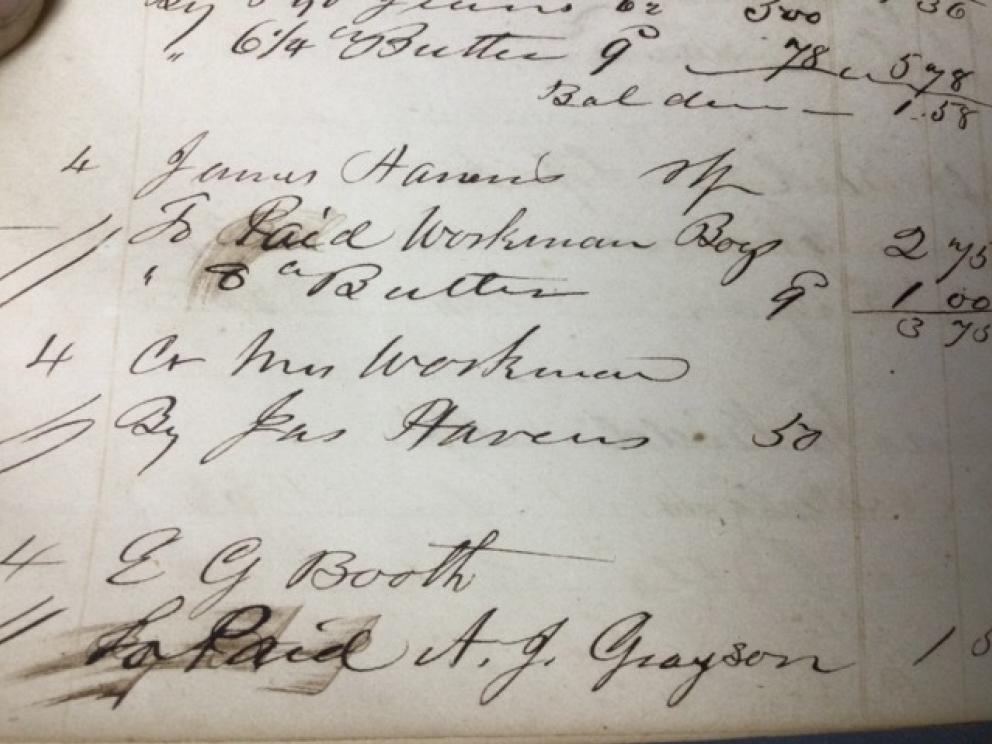 By Jeans 500 36
" 6 1/4 " Butter 9 78 578
Bal due 1.58
4 James Havens
To Paid Workman Boys 2 75
" 8 " Butter 9 1 00
3 75
4 Cr Mrs Workman
By Jas Havens 50
4 E G Booth
To Paid A. J. Grayson 1